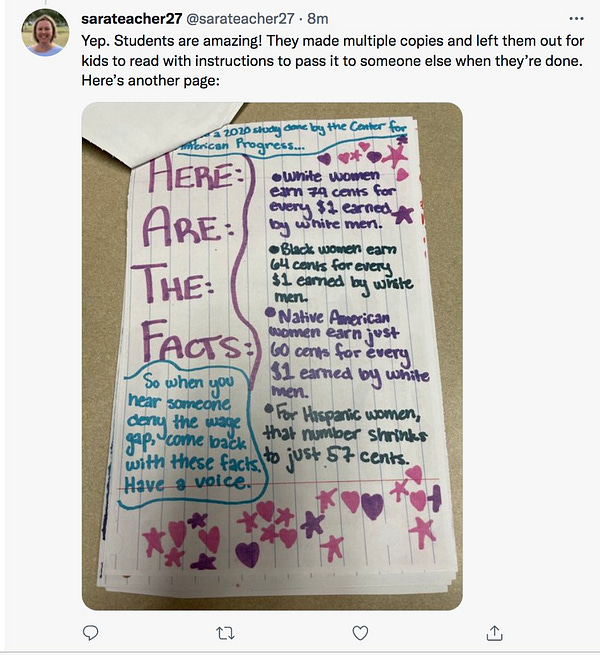 sarateacher27 @sarateacher27 · 8m
Yep. Students are amazing! They made multiple copies and left them out for
kids to read with instructions to pass it to someone else when they're done.
Here's another page:
a 2020 study done by the Center for
American Progress...
HERE:
ARE:
THE:
FACTS:
So when you
hear someone
deny the wage
gap, come back
with these facts.
Have a voice.
•White women
earn 79 cents for
every $1 earned
by white men.
•Black women earn
64 cents for every
$1 earned by white
men.
•Native American
women earn just
60 cents for every
$1 earned by white
men.
•For Hispanic women,
that number shrinks
to just 57 cents.